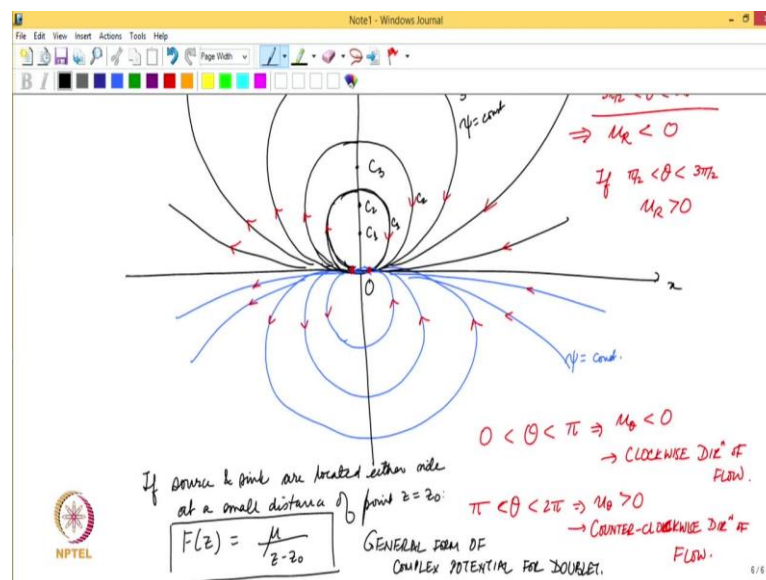 Note1 - Windows Journal
File Edit View Insert Actions Tools Help
Page Width
B I
ψ = const
⇒ u_R < 0
If π/2 < θ < 3π/2
u_R > 0
C₃
C₂
C₁
C₂
C₃
O
x
ψ = const.
0 < θ < π ⇒ u_θ < 0
→ CLOCKWISE DIRⁿ OF
FLOW.
π < θ < 2π ⇒ u_θ > 0
→ COUNTER-CLOCKWISE DIRⁿ OF
FLOW.
If source & sink are located either side
at a small distance of point z = z₀:
F(z) = μ / (z - z₀)
GENERAL FORM OF
COMPLEX POTENTIAL FOR DOUBLET.
NPTEL
6/6